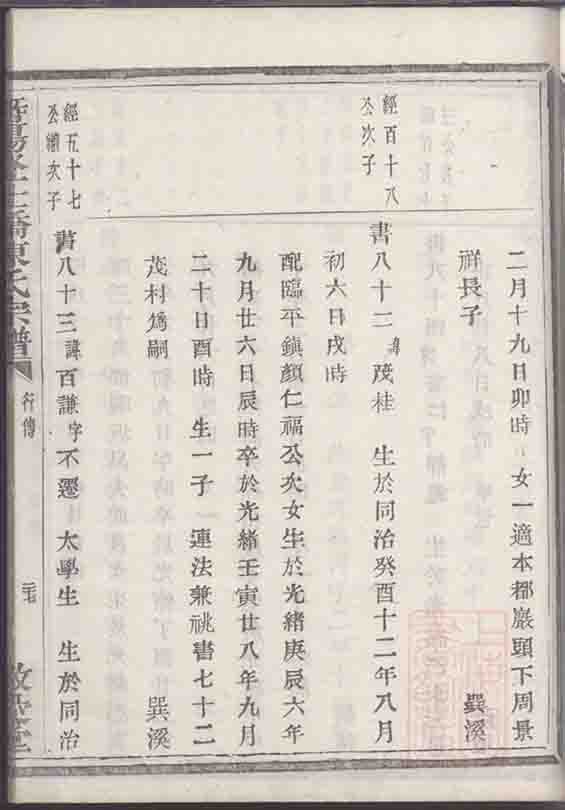 二月十九日卯時 女一適本都巖頭下周景
祥長子 巽溪
經百十八
公次子
書八十二諱茂桂 生於同治癸酉十二年八月
初六日戌時
配臨平鎮顏仁福公次女生於光緒庚辰六年
九月廿六日辰時卒於光緒壬寅廿八年九月
二十日酉時 生一子 連法兼祧書七十二
茂村爲嗣 巽溪
經五十七
公繼次子
書八十三諱百謙字不遷 太學生 生於同治
氏宗譜 行傳